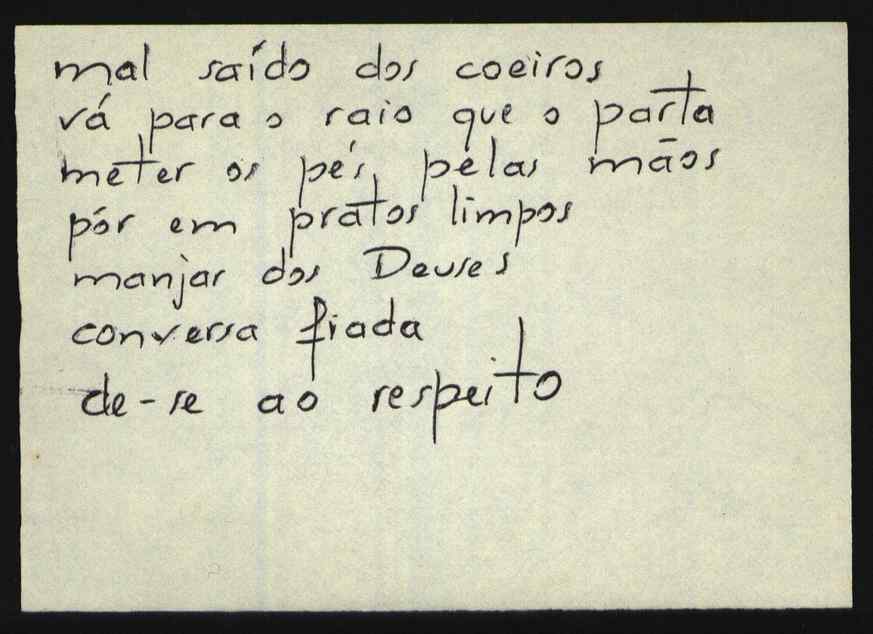 mal saído dos coeiros
vá para o raio que o parta
meter os pés pelas mãos
pôr em pratos limpos
manjar dos Deuses
conversa fiada
de-se ao respeito